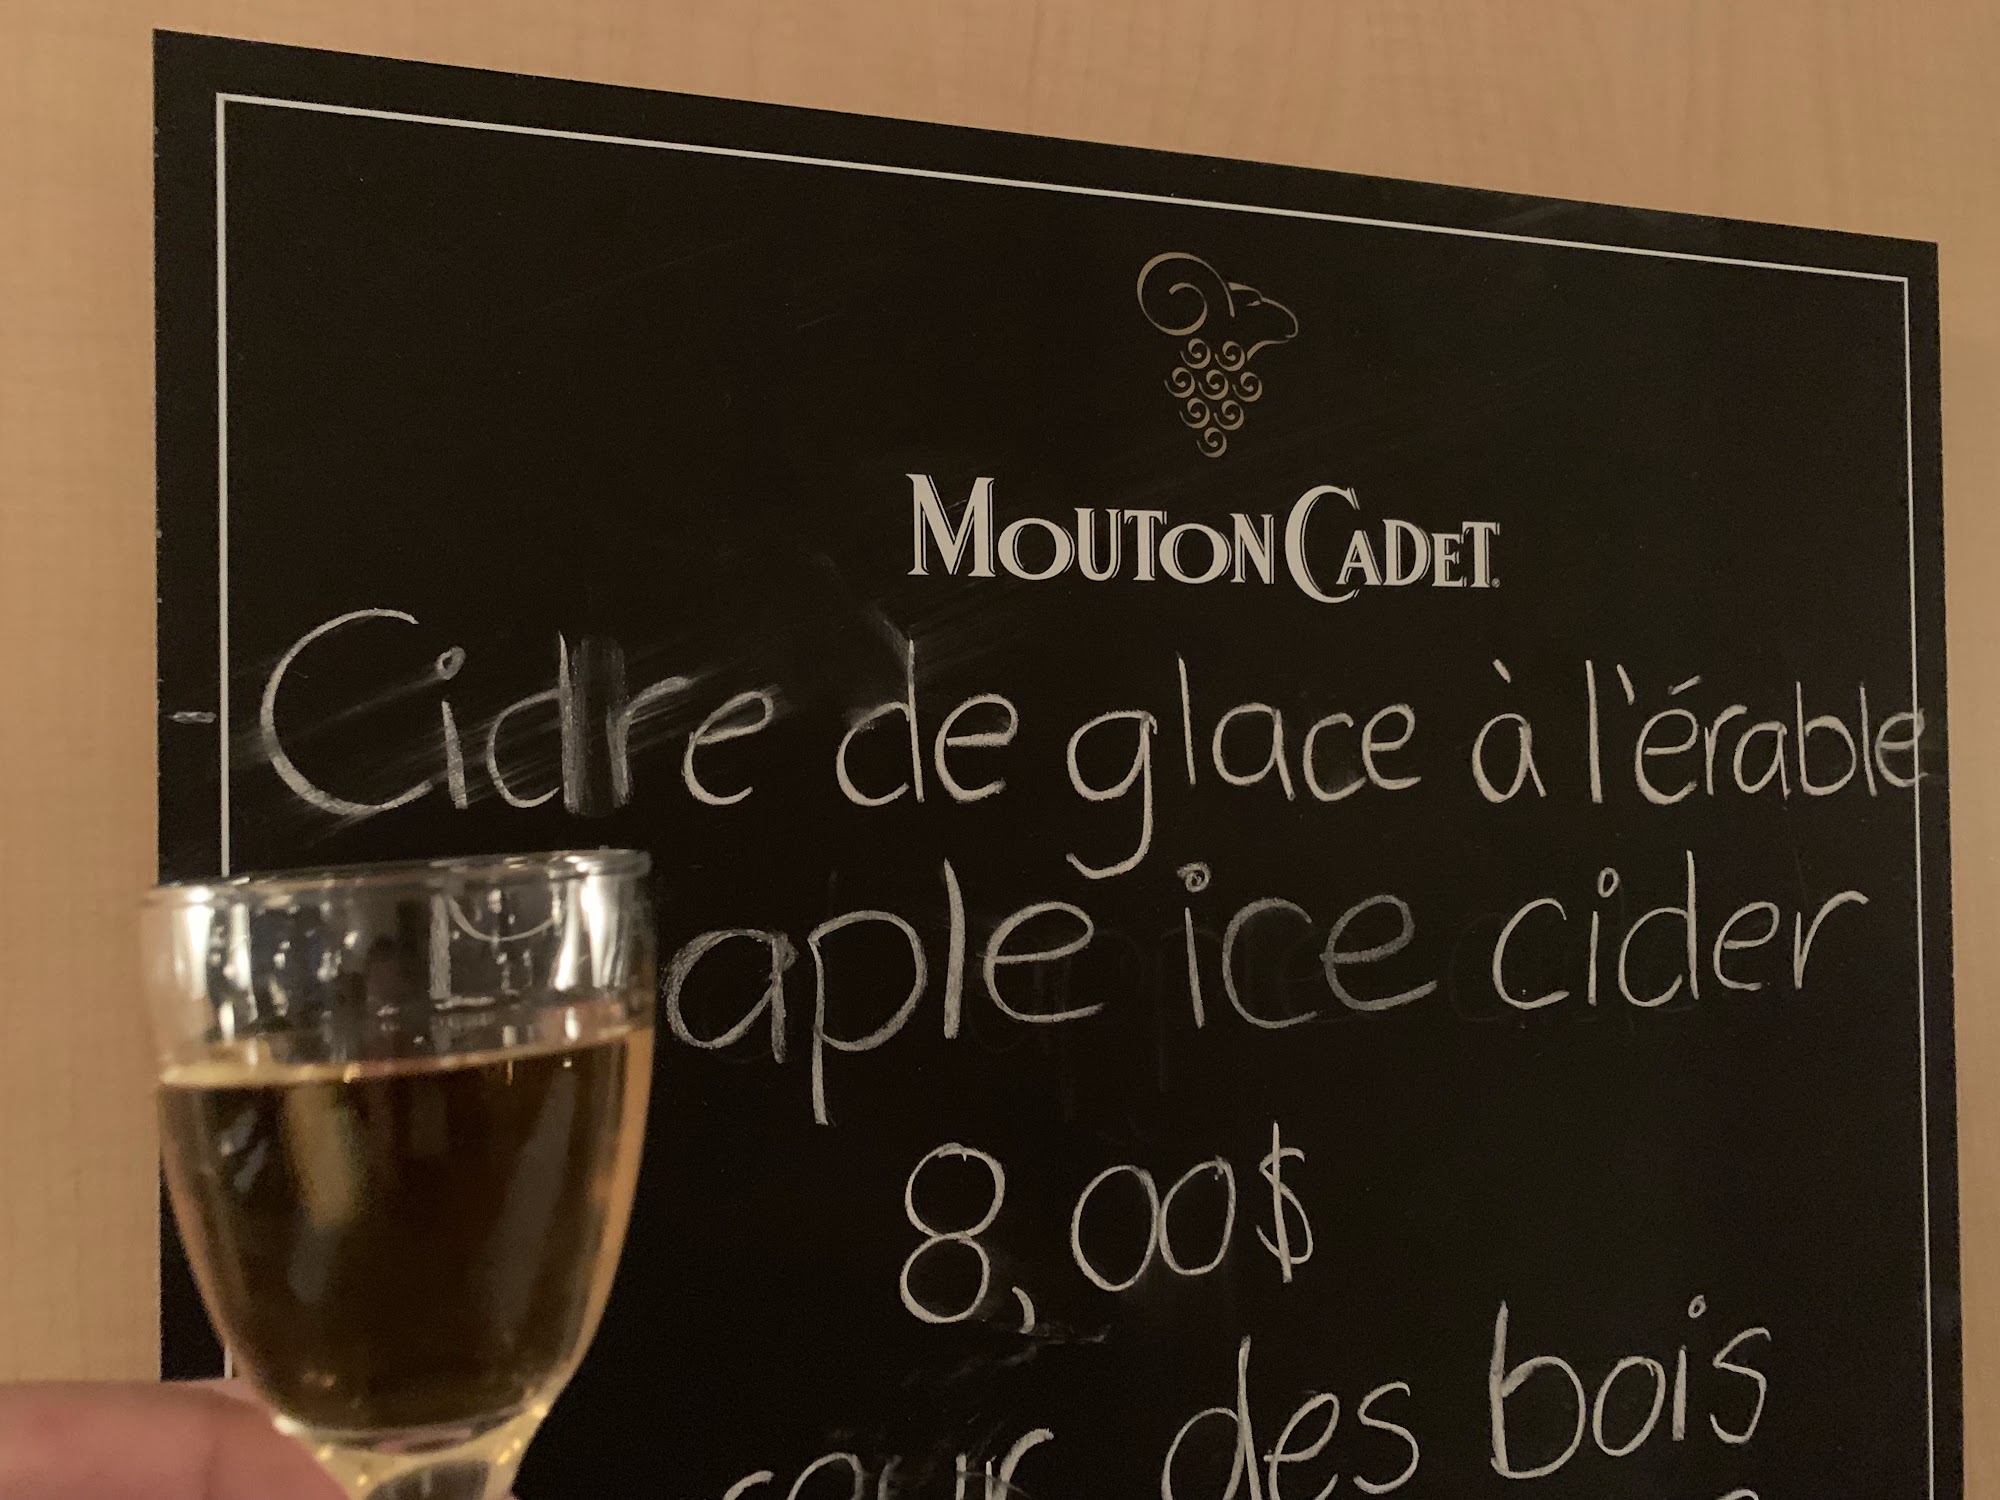 MOUTON CADET
Cidre de glace à l'érable
aple ice cider
8,00$
coeur des bois